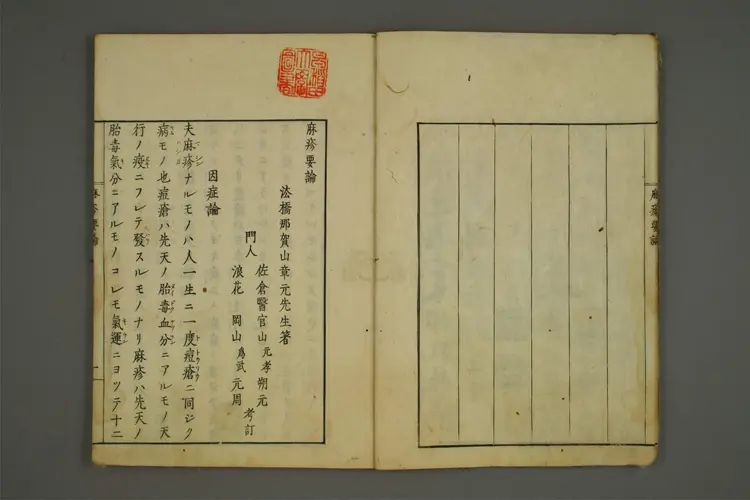 麻疹要論
麻疹要論
法橋那賀山章元先生著
門人
佐倉醫官山元孝朔元
浪花 岡山為武元周
考訂
因症論
夫麻疹ナルモノハ人一生ニ一度痘瘡ニ同ジク
病モノ也痘瘡ハ先天ノ胎毒血分ニアルモノ天
行ノ疫ニフレテ發スルモノナリ麻疹ハ先天ノ
胎毒氣分ニアルモノコレモ氣運ニヨツテ十二
麻疹要論
一